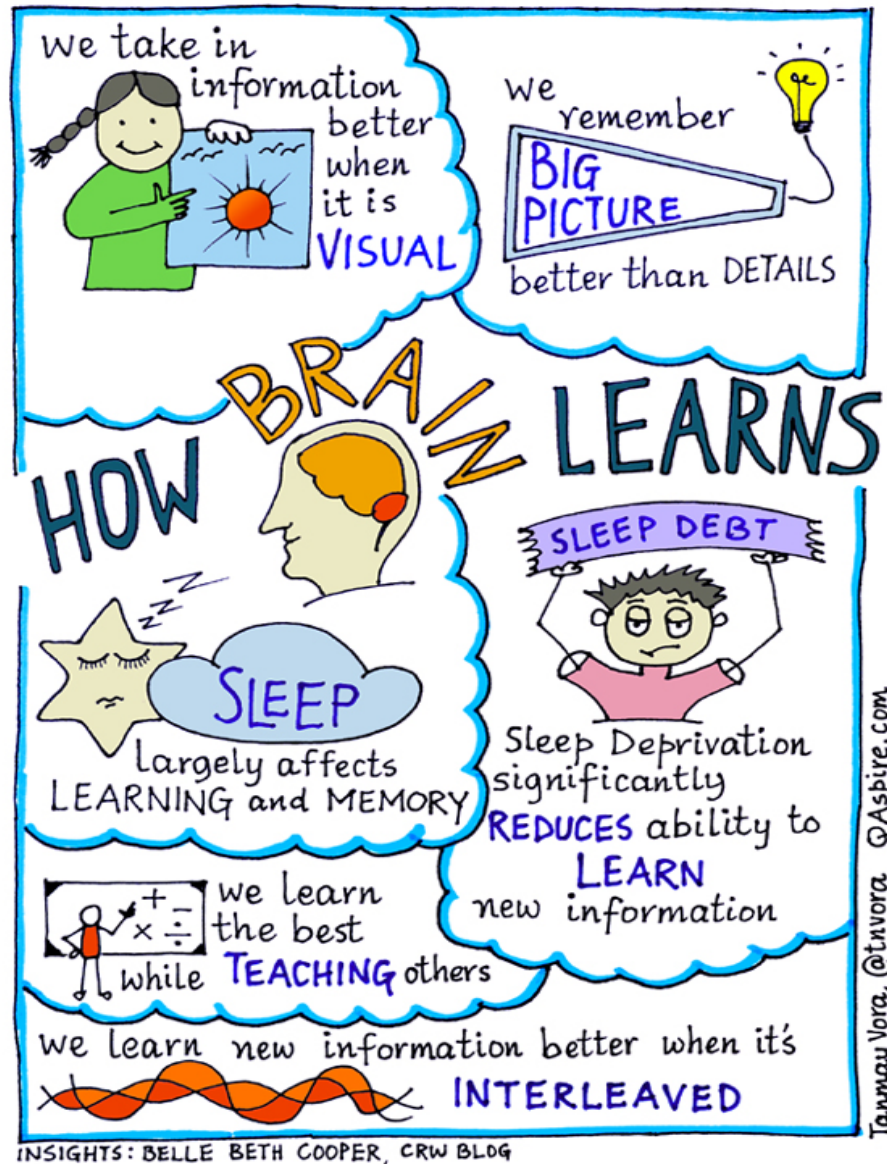 we take in
information
better
when
it is
VISUAL
we
remember
BIG
PICTURE
better than DETAILS
HOW BRAIN LEARNS
zzz
SLEEP
largely affects
LEARNING and MEMORY
SLEEP DEBT
Sleep Deprivation
significantly
REDUCES ability to
LEARN
new information
+ - × ÷
we learn
the best
while TEACHING others
we learn new information better when it's
INTERLEAVED
Tanmay Vora, @tnvora QAspire.com
INSIGHTS: BELLE BETH COOPER, CRW BLOG